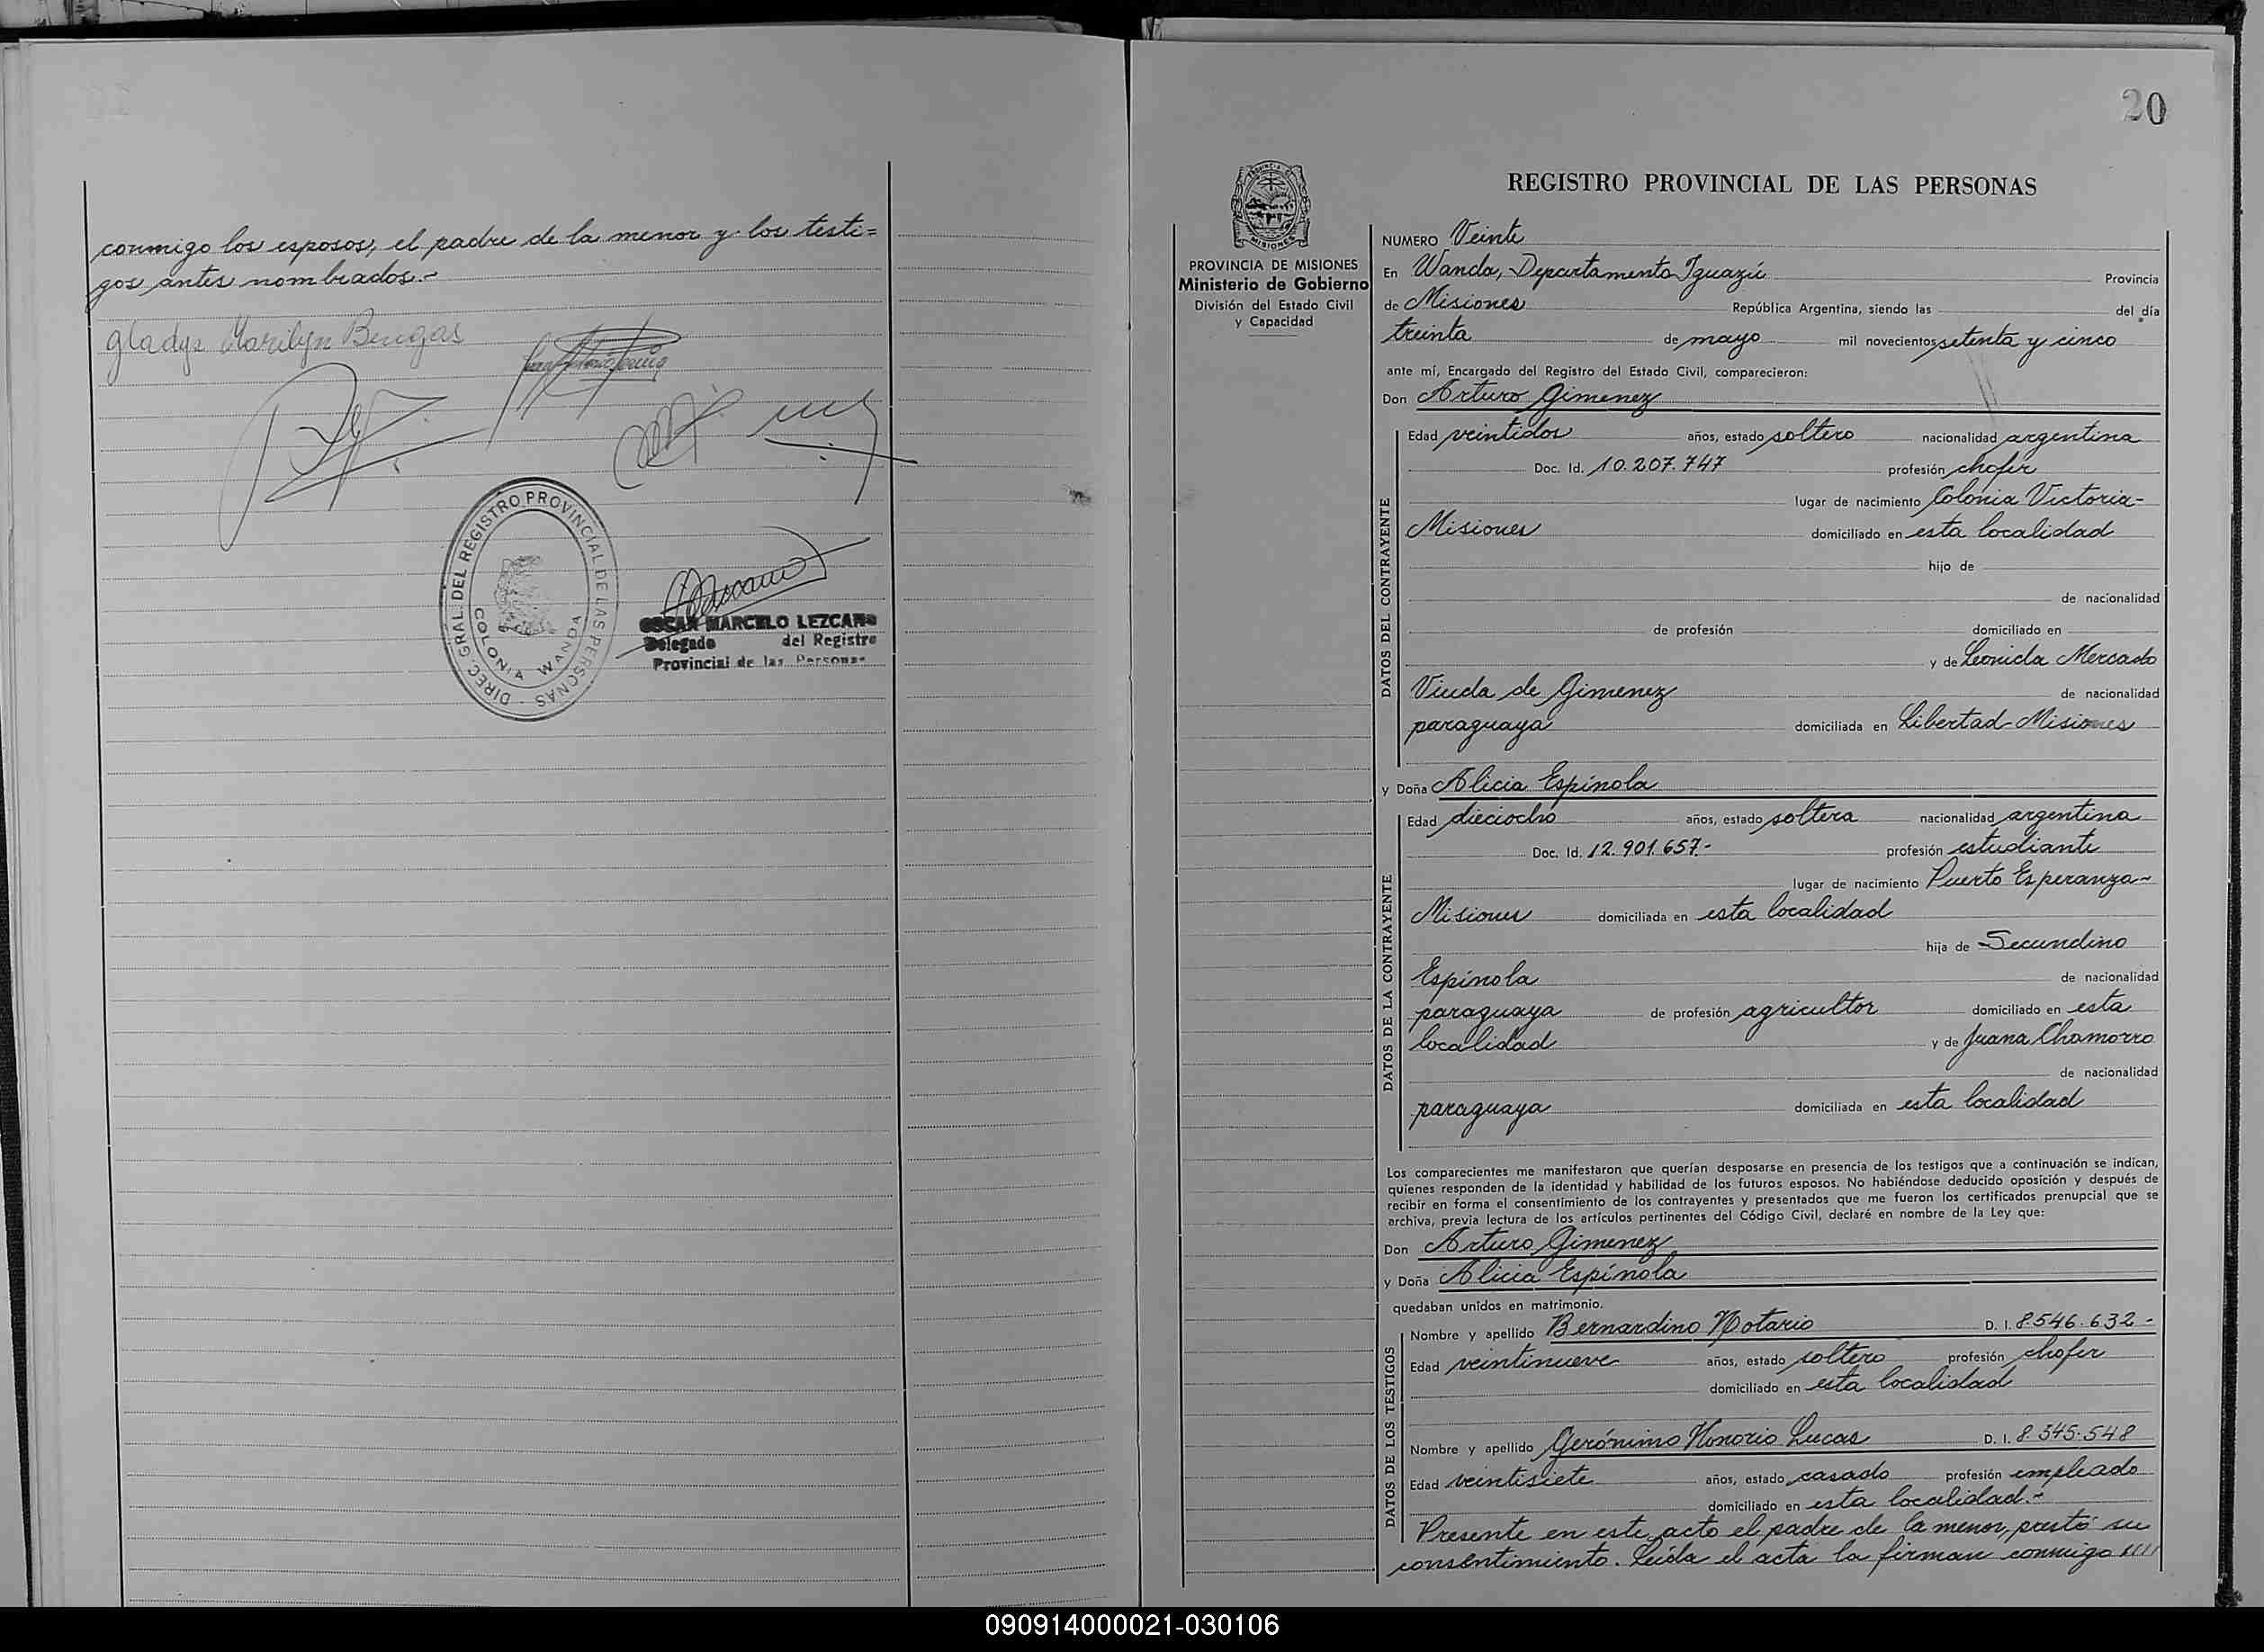 conmigo los esposos, el padre de la menor y los testi=
gos antes nombrados.-
Gladys Marilyn
DIREC. GRAL. DEL REGISTRO PROVINCIAL DE LAS PERSONAS
COLONIA WANDA
OSCAR MARCELO LEZCANO
Delegado del Registro
Provincial de las Personas
20
PROVINCIA DE MISIONES
Ministerio de Gobierno
División del Estado Civil
y Capacidad
REGISTRO PROVINCIAL DE LAS PERSONAS
NUMERO Veinte
En Wanda, Departamento Iguazú Provincia
de Misiones República Argentina, siendo las del día
treinta de mayo mil novecientos setenta y cinco
ante mí, Encargado del Registro del Estado Civil, comparecieron:
Don Arturo Gimenez
DATOS DEL CONTRAYENTE
Edad veintidos años, estado soltero nacionalidad argentina
Doc. Id. 10.207.747 profesión chofer
lugar de nacimiento Colonia Victoria-
Misiones domiciliado en esta localidad
hijo de
de nacionalidad
de profesión domiciliado en
y de Leonida Mercado
Viuda de Gimenez de nacionalidad
paraguaya domiciliada en Libertad-Misiones
y Doña Alicia Espínola
DATOS DE LA CONTRAYENTE
Edad dieciocho años, estado soltera nacionalidad argentina
Doc. Id. 12.901.657.- profesión estudiante
lugar de nacimiento Puerto Esperanza-
Misiones domiciliada en esta localidad
hija de Secundino
Espínola de nacionalidad
paraguaya de profesión agricultor domiciliado en esta
localidad y de Juana Chamorro
de nacionalidad
paraguaya domiciliada en esta localidad
Los comparecientes me manifestaron que querían desposarse en presencia de los testigos que a continuación se indican,
quienes responden de la identidad y habilidad de los futuros esposos. No habiéndose deducido oposición y después de
recibir en forma el consentimiento de los contrayentes y presentados que me fueron los certificados prenupcial que se
archiva, previa lectura de los artículos pertinentes del Código Civil, declaré en nombre de la Ley que:
Don Arturo Gimenez
y Doña Alicia Espínola
quedaban unidos en matrimonio.
DATOS DE LOS TESTIGOS
Nombre y apellido Bernardino Notario D. I. 8.546.632-
Edad veintinueve años, estado soltero profesión chofer
domiciliado en esta localidad
Nombre y apellido Gerónimo Honorio Lucas D. I. 8.345.548
Edad veintisiete años, estado casado profesión empleado
domiciliado en esta localidad.-
Presente en este acto el padre de la menor, prestó su
consentimiento. Leída el acta la firman conmigo ////
090914000021-030106